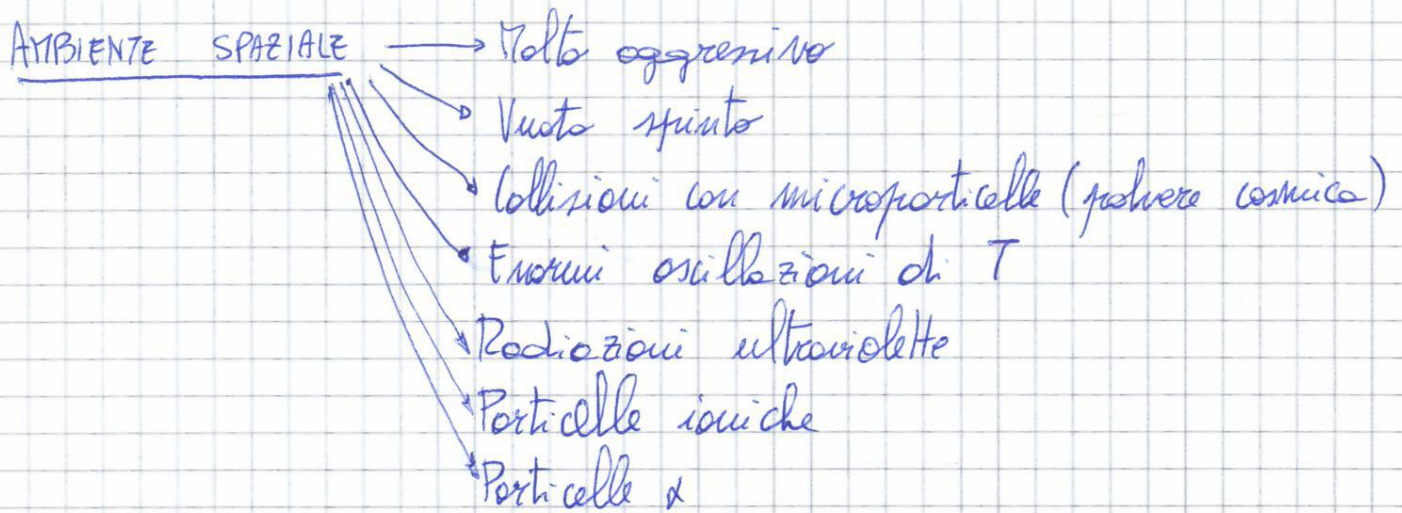 AMBIENTE SPAZIALE → Molto aggressivo
Vuoto spinto
Collisioni con microparticelle (polvere cosmica)
Enormi oscillazioni di T
Radiazioni ultraviolette
Particelle ioniche
Particelle α